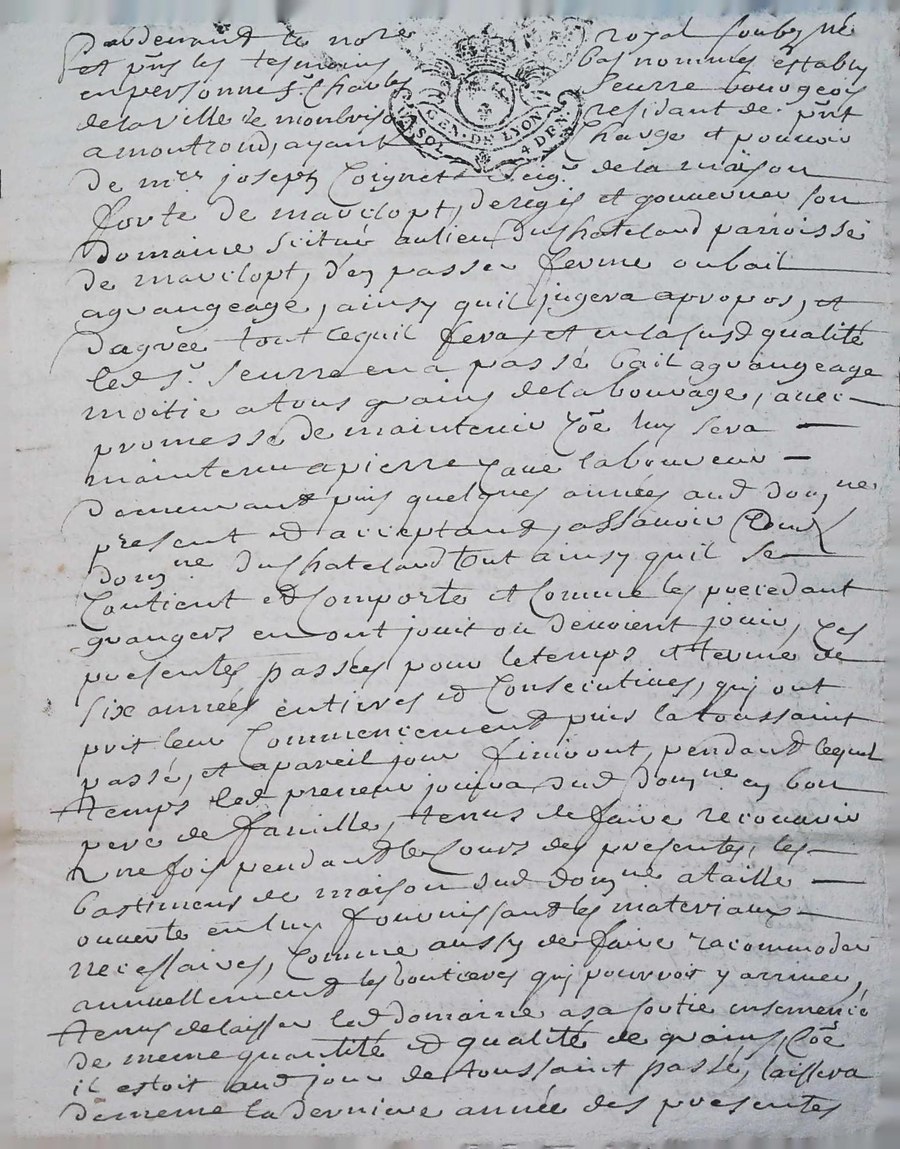 Pardevant le no.re royal soubzne
et pnts les tesmoins bas nommés establÿ
en personne sr. Charles Seurre bourgeois
de la ville de monbrison residant de pnt
a montrond, ayant charge et pouvoir
de mre joseph Coignet seigr de la maison
forte de maclopt, de regir et gouverner son
domaine scitué au lieu du Chateland parroisse
de marclopt, d'en passer ferme ou bail
a grangeage, ainsy quil jugera apropos, et
dagrée tout ce quil fera, et en la susd qualité
led sr. Seurre en a passé bail a grangeage
moitie a tous grains de labourage, avec
promesse de maintenir Côe luy sera
maintenu a pierre laboureur
demeurant puis quelques années aud domne
present et acceptant, assavoir led
domne du Chateland tout ainsy quil se
Contient et Comporte et Comme les precedant
grangers en ont jouit ou devoient jouir, ces
presentes passées pour le temps et terme de
six années entieres et Consecutives, qui ont
prit leur Commencement puis la toussaint
passé, et a pareil jour finiront, pendant lequel
temps led preneur jouira dud domne en bon
pere de famille, tenus de faire recouvrir
une fois pendant le Cours des presentes, les
bastimens de maison dud domne a taille
ouverte en luy fournissant les materiaux
necessaires, Comme aussy de faire racommoder
annuellement les boutieres qui pourroit y arriver,
tenus de laisser led domaine a sa sortie insemencé
de meme quantité et qualité de grains, Côe
il estoit aud jour de toussaint passé, laissera
de meme la derniere année des presentes
GEN. DE LYON
SOL 4 DEN.